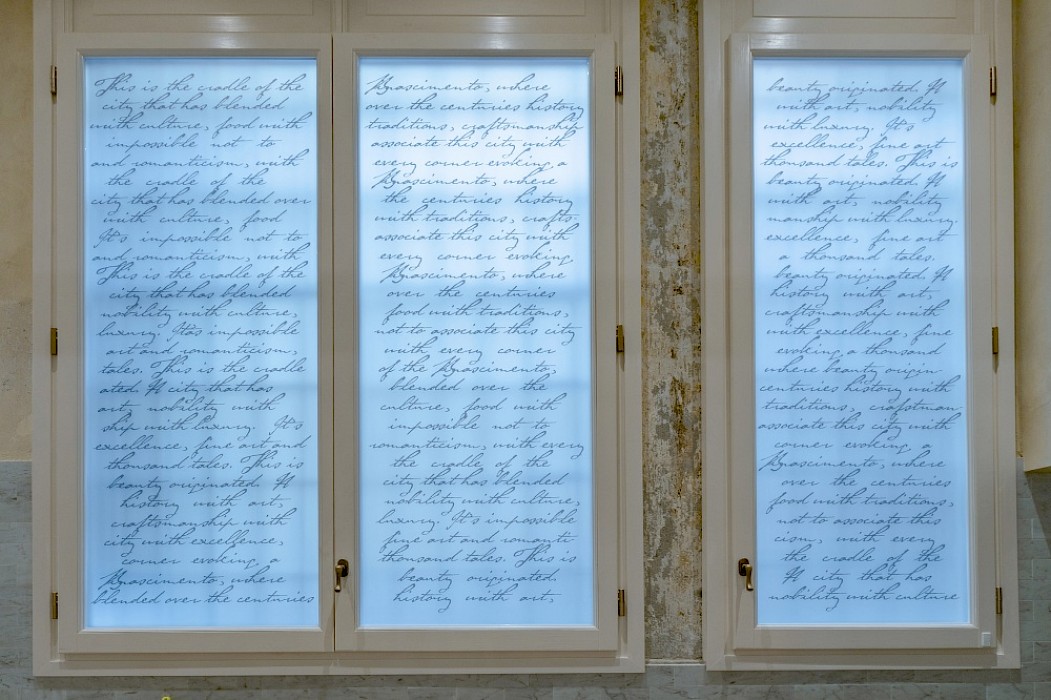 This is the cradle of the
city that has blended
with culture, food with
impossible not to
and romanticism, with
the cradle of the
city that has blended over
with culture, food
It's impossible not to
and romanticism, with
This is the cradle of the
city that has blended
nobility with culture,
luxury. It's impossible
art and romanticism,
tales. This is the cradle
ated. A city that has
art, nobility with
ship with luxury. It's
excellence, fine art and
thousand tales. This is
beauty originated. A
history with art,
craftsmanship with
city with excellence,
corner evoking a
Rinascimento, where
blended over the centuries
Rinascimento, where
over the centuries history
traditions, craftsmanship
associate this city with
every corner evoking a
Rinascimento, where
the centuries history
with traditions, crafts-
associate this city with
every corner evoking
Rinascimento, where
over the centuries
food with traditions,
not to associate this city
with every corner
of the Rinascimento,
blended over the
culture, food with
impossible not to
romanticism, with every
the cradle of the
city that has blended
nobility with culture,
luxury. It's impossible
fine art and romanti-
thousand tales. This is
beauty originated.
history with art,
beauty originated. A
with art, nobility
with luxury. It's
excellence, fine art
thousand tales. This is
beauty originated. A
with art, nobility
manship with luxury.
excellence, fine art
a thousand tales.
beauty originated. A
history with art,
craftsmanship with
with excellence, fine
evoking a thousand
where beauty origin-
centuries history with
traditions, craftsman-
associate this city with
corner evoking a
Rinascimento, where
over the centuries
food with traditions,
not to associate this
cism, with every
the cradle of the
A city that has
nobility with culture